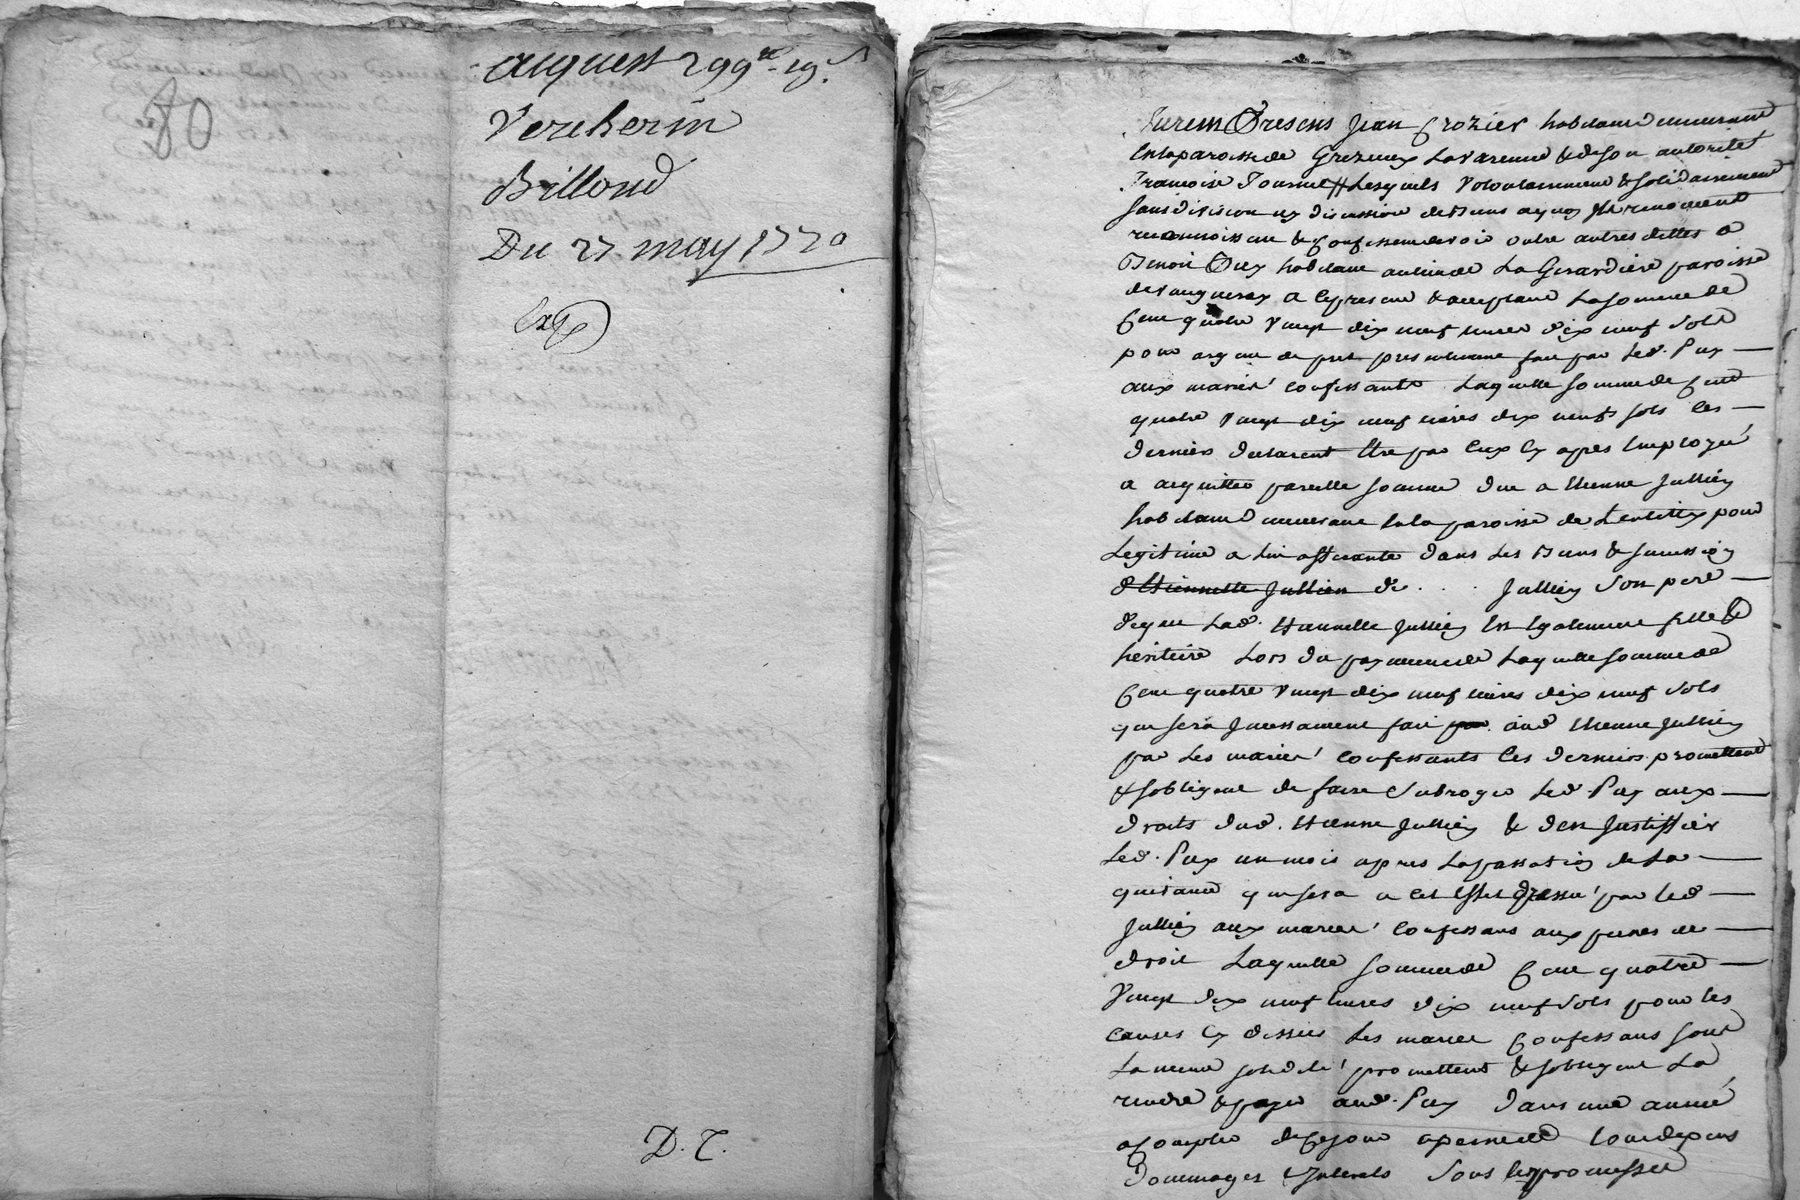 80
acquest 299# 19 s
Vercherin
Billoud
Du 27 may 1770
Exp
D. C.
Furent Presens Jean Crozier habitant demeurant
en la paroisse de Grezieux Lavarenne & de son autorité
Françoise Lesquels volontairement & solidairement
sans division ny discussion de biens auquoy ils renoncent
reconnoissent & confessent devoir outre autres dettes a
Benoit Puy habitant au lieu de La Girardière paroisse
de vaugneray a ce present & acceptant La somme de
Cent quatre vingt dix neuf livres dix neuf sols
pour argent de pret presentement fait par led. Puy
aux mariés confessants Laquelle somme de Cent
quatre vingt dix neuf livres dix neuf sols ces
derniers declarent etre par eux cy apres employée
a acquitter pareille somme due a Etienne Jullien
habitant demeurant en la paroisse de Lentilly pour
Legitime a lui afferante dans Les Biens & succession
d'Etiennette Jullien de . . . Jullien son pere
de que Lad. Etiennette Jullien est egalement fille &
heritiere Lors du payement de Laquelle somme de
Cent quatre vingt dix neuf livres dix neuf sols
qui sera incessament fait aud Etienne Jullien
par Les mariés confessants ces derniers promettent
& sobligent de faire subroger led. Puy aux
droits dud. Etienne Jullien & d'en Justiffier
Led. Puy un mois apres La passation de La
quittance qui sera a cet effet passée par led
Jullien aux mariés confessans aux peines de
droit Laquelle somme de Cent quatre
vingt dix neuf livres dix neuf sols pour les
causes cy dessus Les mariés Confessans sous
La meme solidité promettent & sobligent La
rendre & payer aud. Puy dans une année
a compter de ce jour a peine de tous depens
Dommages & Interets Sous les promesses